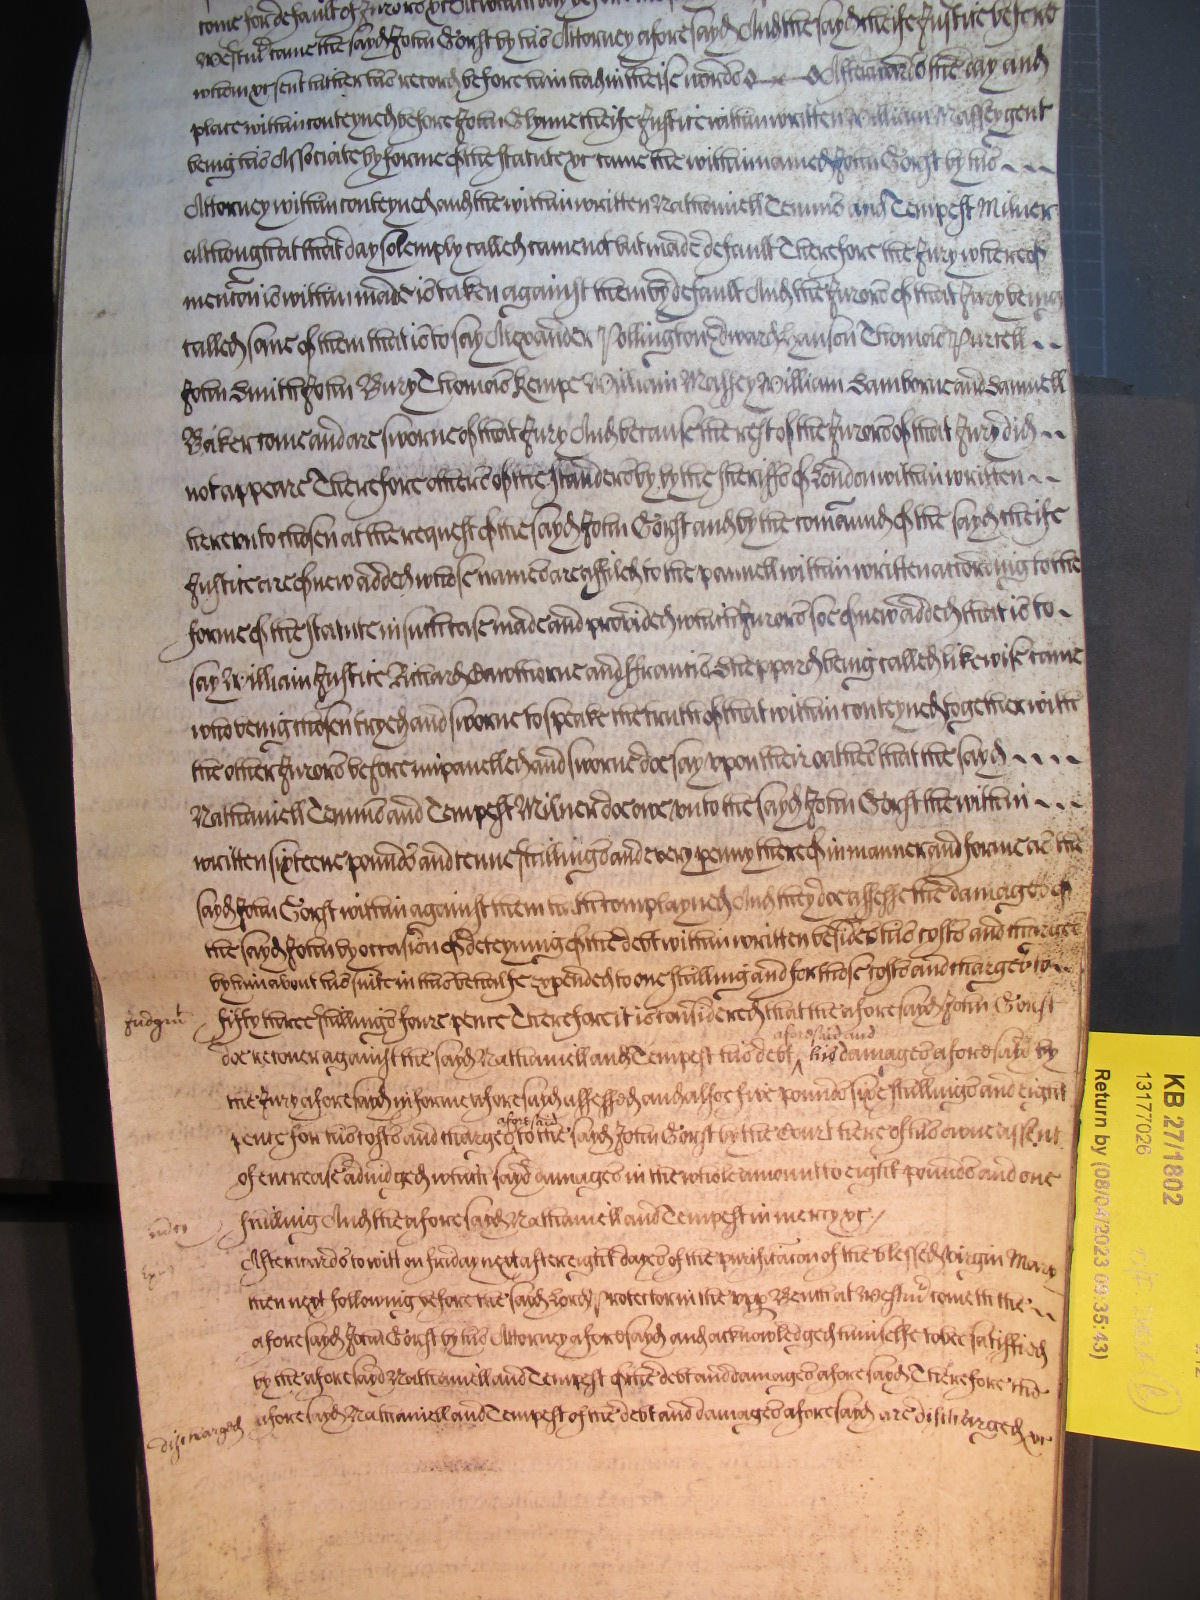 come for default of Jurors &c At which day before
Westmr came the sayd John Gorst by his Attorney aforesayd And the sayd cheife Justice before
whom &c sent hither his record before him had in theise words Afterwards the day and
place within conteyned before John Glynne cheife Justice within written William Massey gent
being his Associate by forme of the statute &c came the within named John Gorst by his
Attorney within conteyned and the within written Nathaniell Temms and Tempest Milner
although at that day solemply called came not but made default Therefore the Jury whereof
mencon is within made is taken against them by default And the Jurors of that Jury being
called some of them that is to say Alexander Pollington Edward Hanson Thomas Purcell
John Smith John Bury Thomas Kempe William Massey William Samborne and Samuell
Baker come and are sworne of that Jury And because the rest of the Jurors of that Jury did
not appeare Therefore others of the standers by by the sheriffs of London within written
hereunto chosen at the request of the sayd John Gorst and by the comaund of the sayd cheife
Justice are of new added whose names are affiled to the pannell within written according to the
forme of the statute in such case made and provided which Jurors soe of new added that is to
say William Justice Richard Hawthorne and ffrancis Sheppard being called likewise came
who being chosen tryed and sworne to speake the truth of that within conteyned together with
the other Jurors before impanelled and sworne doe say upon their oathes that the sayd
Nathaniell Temms and Tempest Milner doe owe unto the sayd John Gorst the within
written sixteene pounds and tenne shillings and every penny thereof in manner and forme as the
sayd John Gorst within against them hath complayned And they doe assesse the damages of
the sayd John by occasion of deteyning of the debt within written besides his costs and charges
by him about his suite in this behalfe expended to one shilling and for those costs and charges to
Judgmt fifty three shillings foure pence Therefore it is considered that the aforesayd John Gorst
doe recover against the sayd Nathaniell and Tempest his debt aforesaid and his damages aforesaid by
the Jury aforesayd in forme aforesayd assessed and alsoe five pounds sixe shillings and eight
pence for his costs and charges aforesaid to the sayd John Gorst by the Court here of his owne assent
of encrease adiudged which sayd damages in the whole amount to eight pounds and one
shilling And the aforesayd Nathaniell and Tempest in mercy &c
Afterwards to witt on friday next after eight dayes of the purificacon of the blessed virgin Mary
then next following before the said Lord Protector in the upp Bench at Westmr cometh the
aforesayd John Gorst by his Attorney aforesayd and acknowledged himselfe to bee satisfied
by the aforesayd Nathaniell and Tempest of the debt and damages aforesayd Therefore the
discharged aforesayd Nathaniell and Tempest of the debt and damages aforesayd are discharged &c
KB 27/1802
13177026
Return by (08/04/2023 09:35:43)